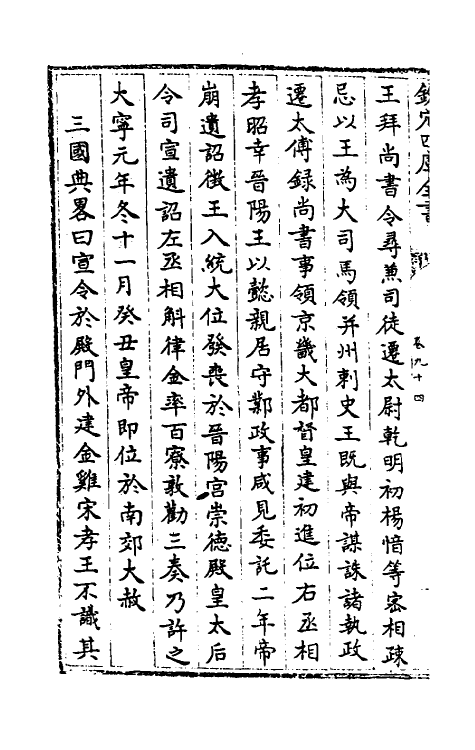 欽定四庫全書
卷九十四
王拜尚書令尋兼司徒遷太尉乾明初楊愔等宻相疎
忌以王為大司馬領并州刺史王既與帝謀誅諸執政
遷太傅録尚書事領京畿大都督皇建初進位右丞相
孝昭幸晉陽王以懿親居守鄴政事咸見委託二年帝
崩遺詔徵王入統大位發喪於晉陽宮崇徳殿皇太后
令司宣遺詔左丞相斛律金率百寮敦勸三奏乃許之
大寧元年冬十一月癸丑皇帝即位於南郊大赦
三國典畧曰宣令於殿門外建金雞宋孝王不識其